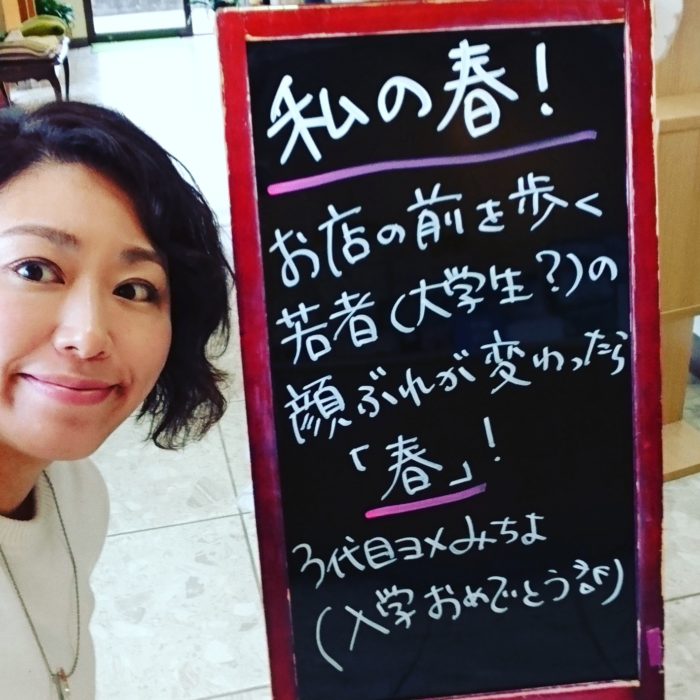 私の春!
お店の前を歩く
若者(大学生?)の
顔ぶれが変わったら
「春」!
3代目ヨメみちよ
(入学おめでとう)